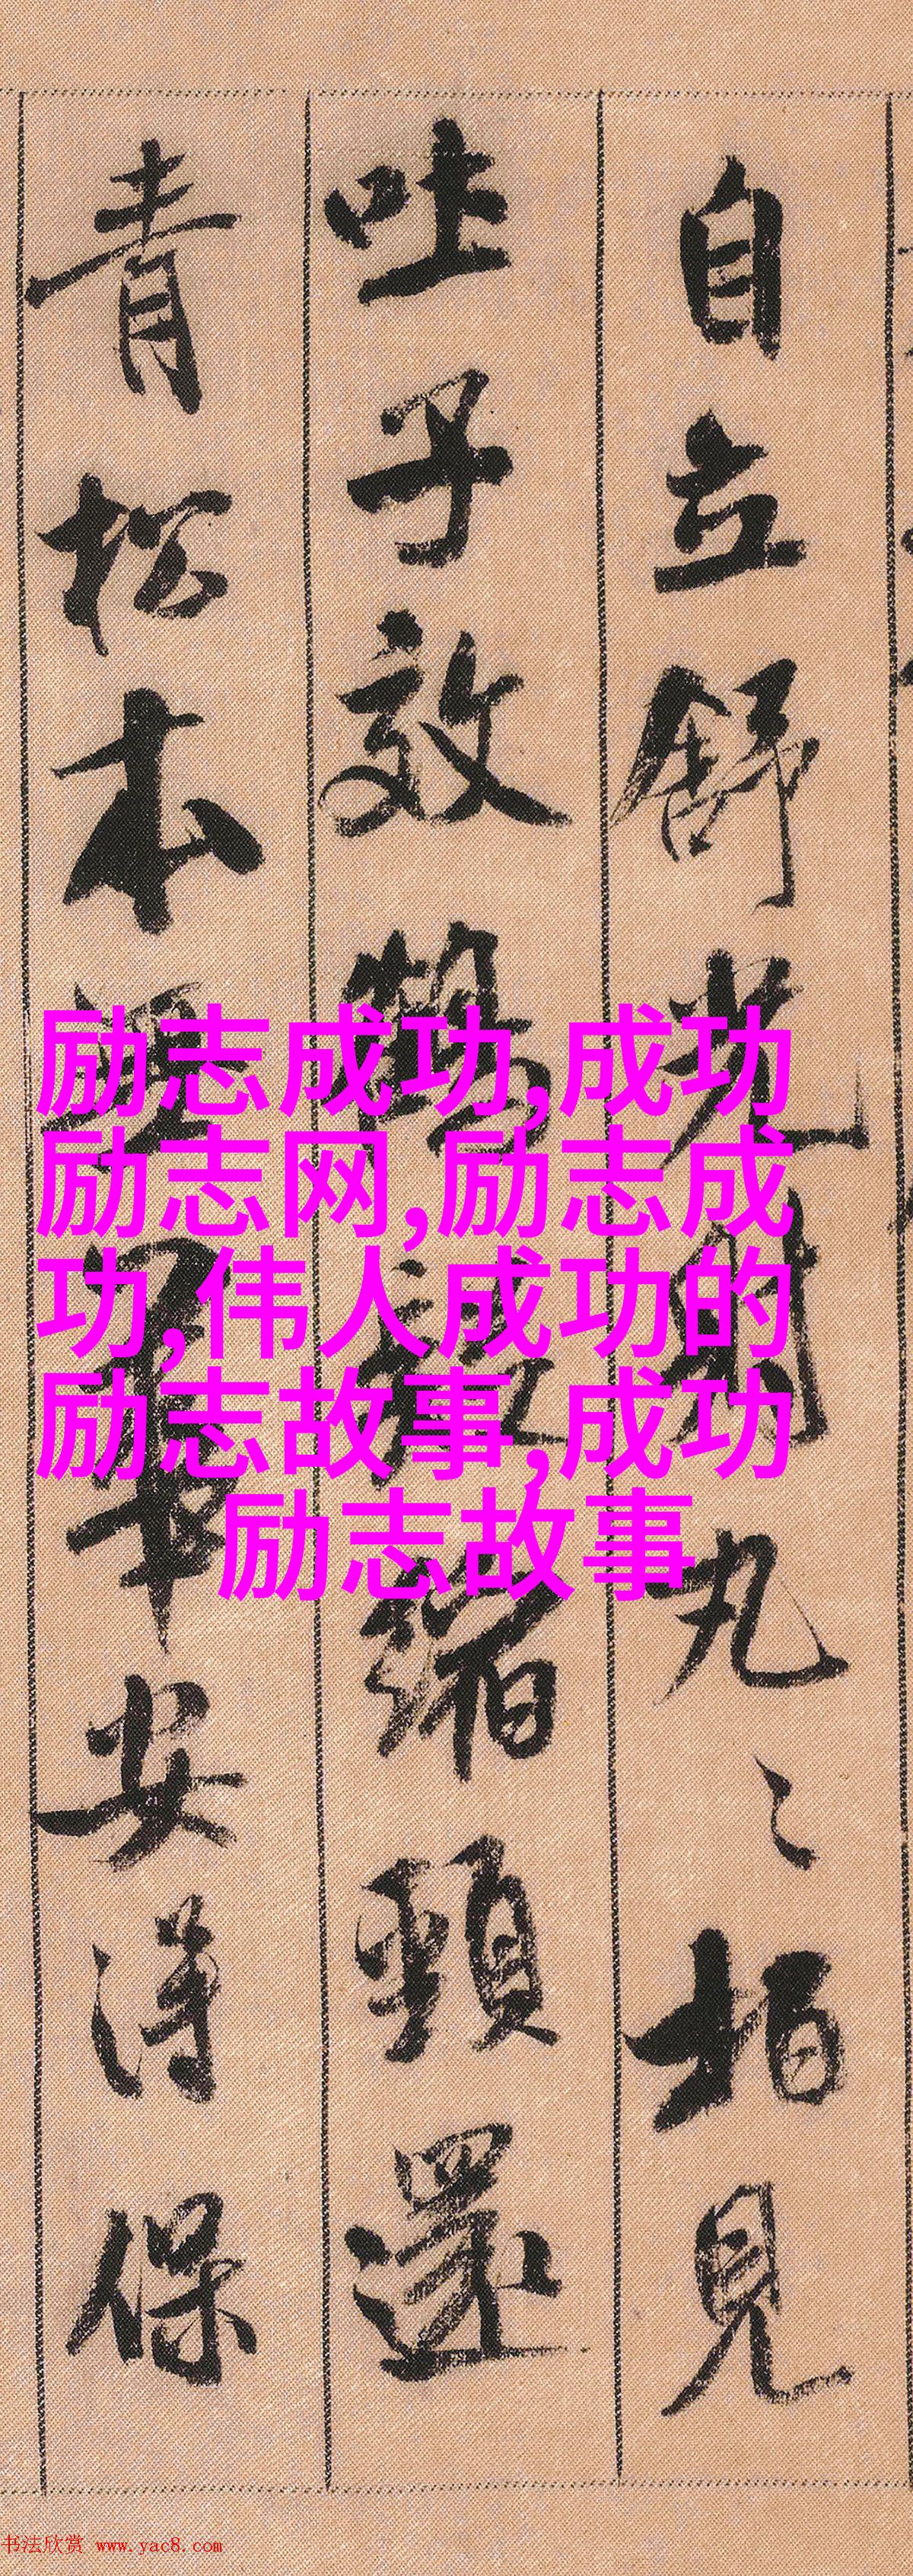 自立舒光射丸〻柏見
吐子效鶴疑縮頸還
青松本無華安得保
励志成功,成功
励志网,励志成
功,伟人成功的
励志故事,成功
励志故事
书法欣赏 www.yac8.com